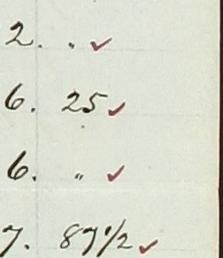 2. " ✓
6. 25 ✓
6. " ✓
7. 87 1/2 ✓